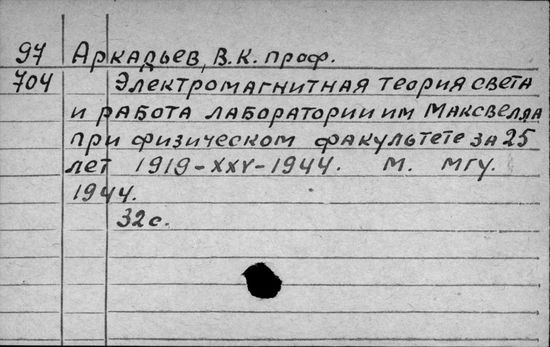 97 Аркадьев, В.К. проф.
704 Электромагнитная теория света
и работа лаборатории им Максвелла
при физическом факультете за 25
лет 1919-XXV-1944. М. МГУ.
1944.
32с.